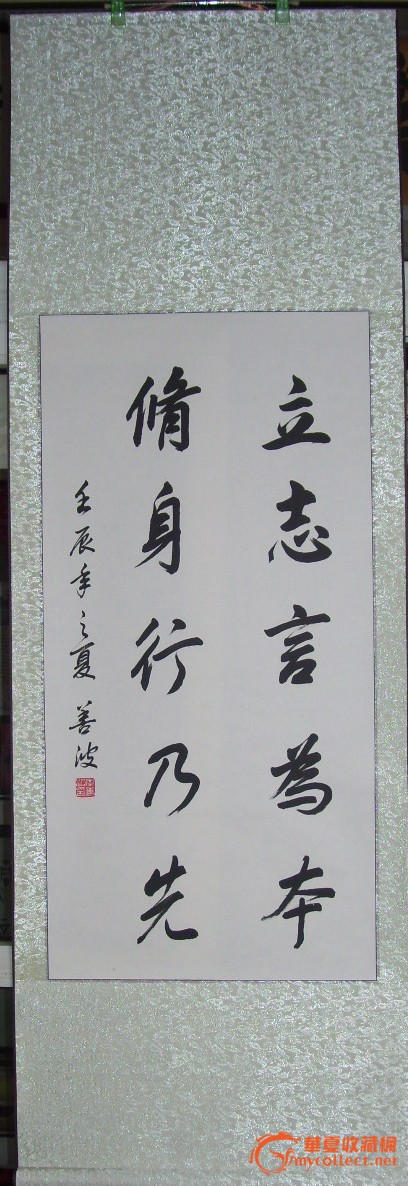 立志言為本
脩身行乃先
壬辰年之夏 善波
華夏收藏網
mycollect.net